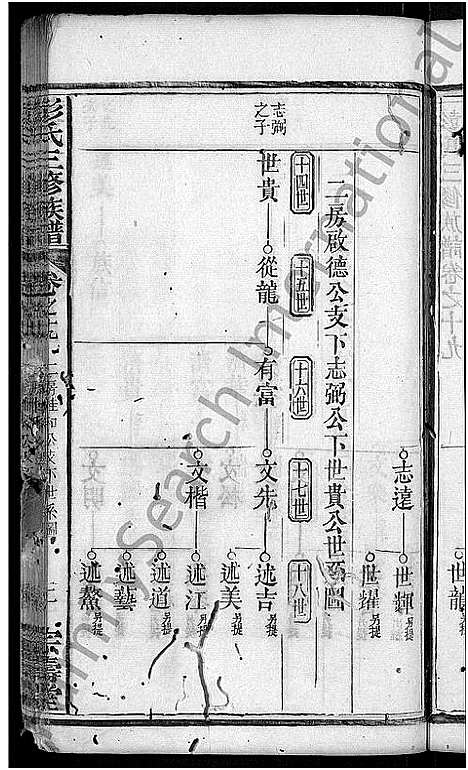 世龍
志遠
世輝 另提
世耀 另提
二房啟德公支下志弼公下世貴公世系圖
十四世
十五世
十六世
十七世
十八世
志弼之子
世貴
從龍
有富
文先
述吉 另提
述美 另提
文楷
述江 另提
述道 另提
述藝 另提
述鰲 另提
彭氏三修族譜
卷之十九
FamilySearch International